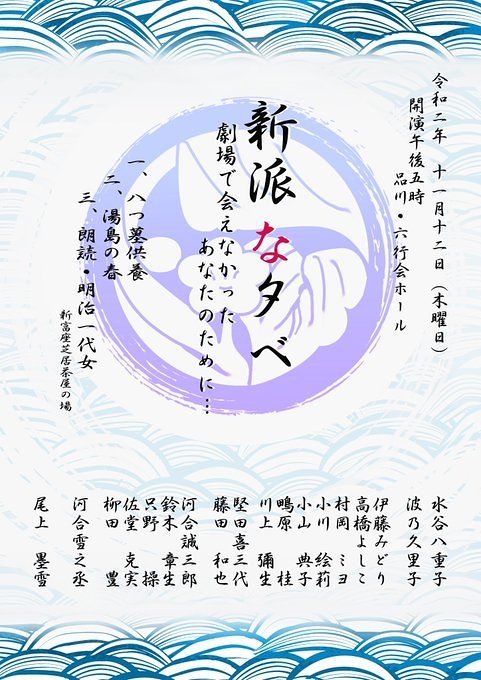 令和二年 十一月十二日（木曜日）
開演午後五時
品川・六行会ホール
新派な夕べ
劇場で会えなかった
あなたのために…
一、八つ墓供養
二、湯島の春
三、朗読・明治一代女
新富座芝居茶屋の場
水谷八重子
波乃久里子
伊藤みどり
高橋よしこ
村岡 ミヨ
小川 絵莉
小山 典子
鴫原 桂
川上 彌生
堅田喜三代
藤田 和也
河合誠三郎
鈴木 章生
只野 操
佐堂 克実
柳田 豊
河合雪之丞
尾上 墨雪